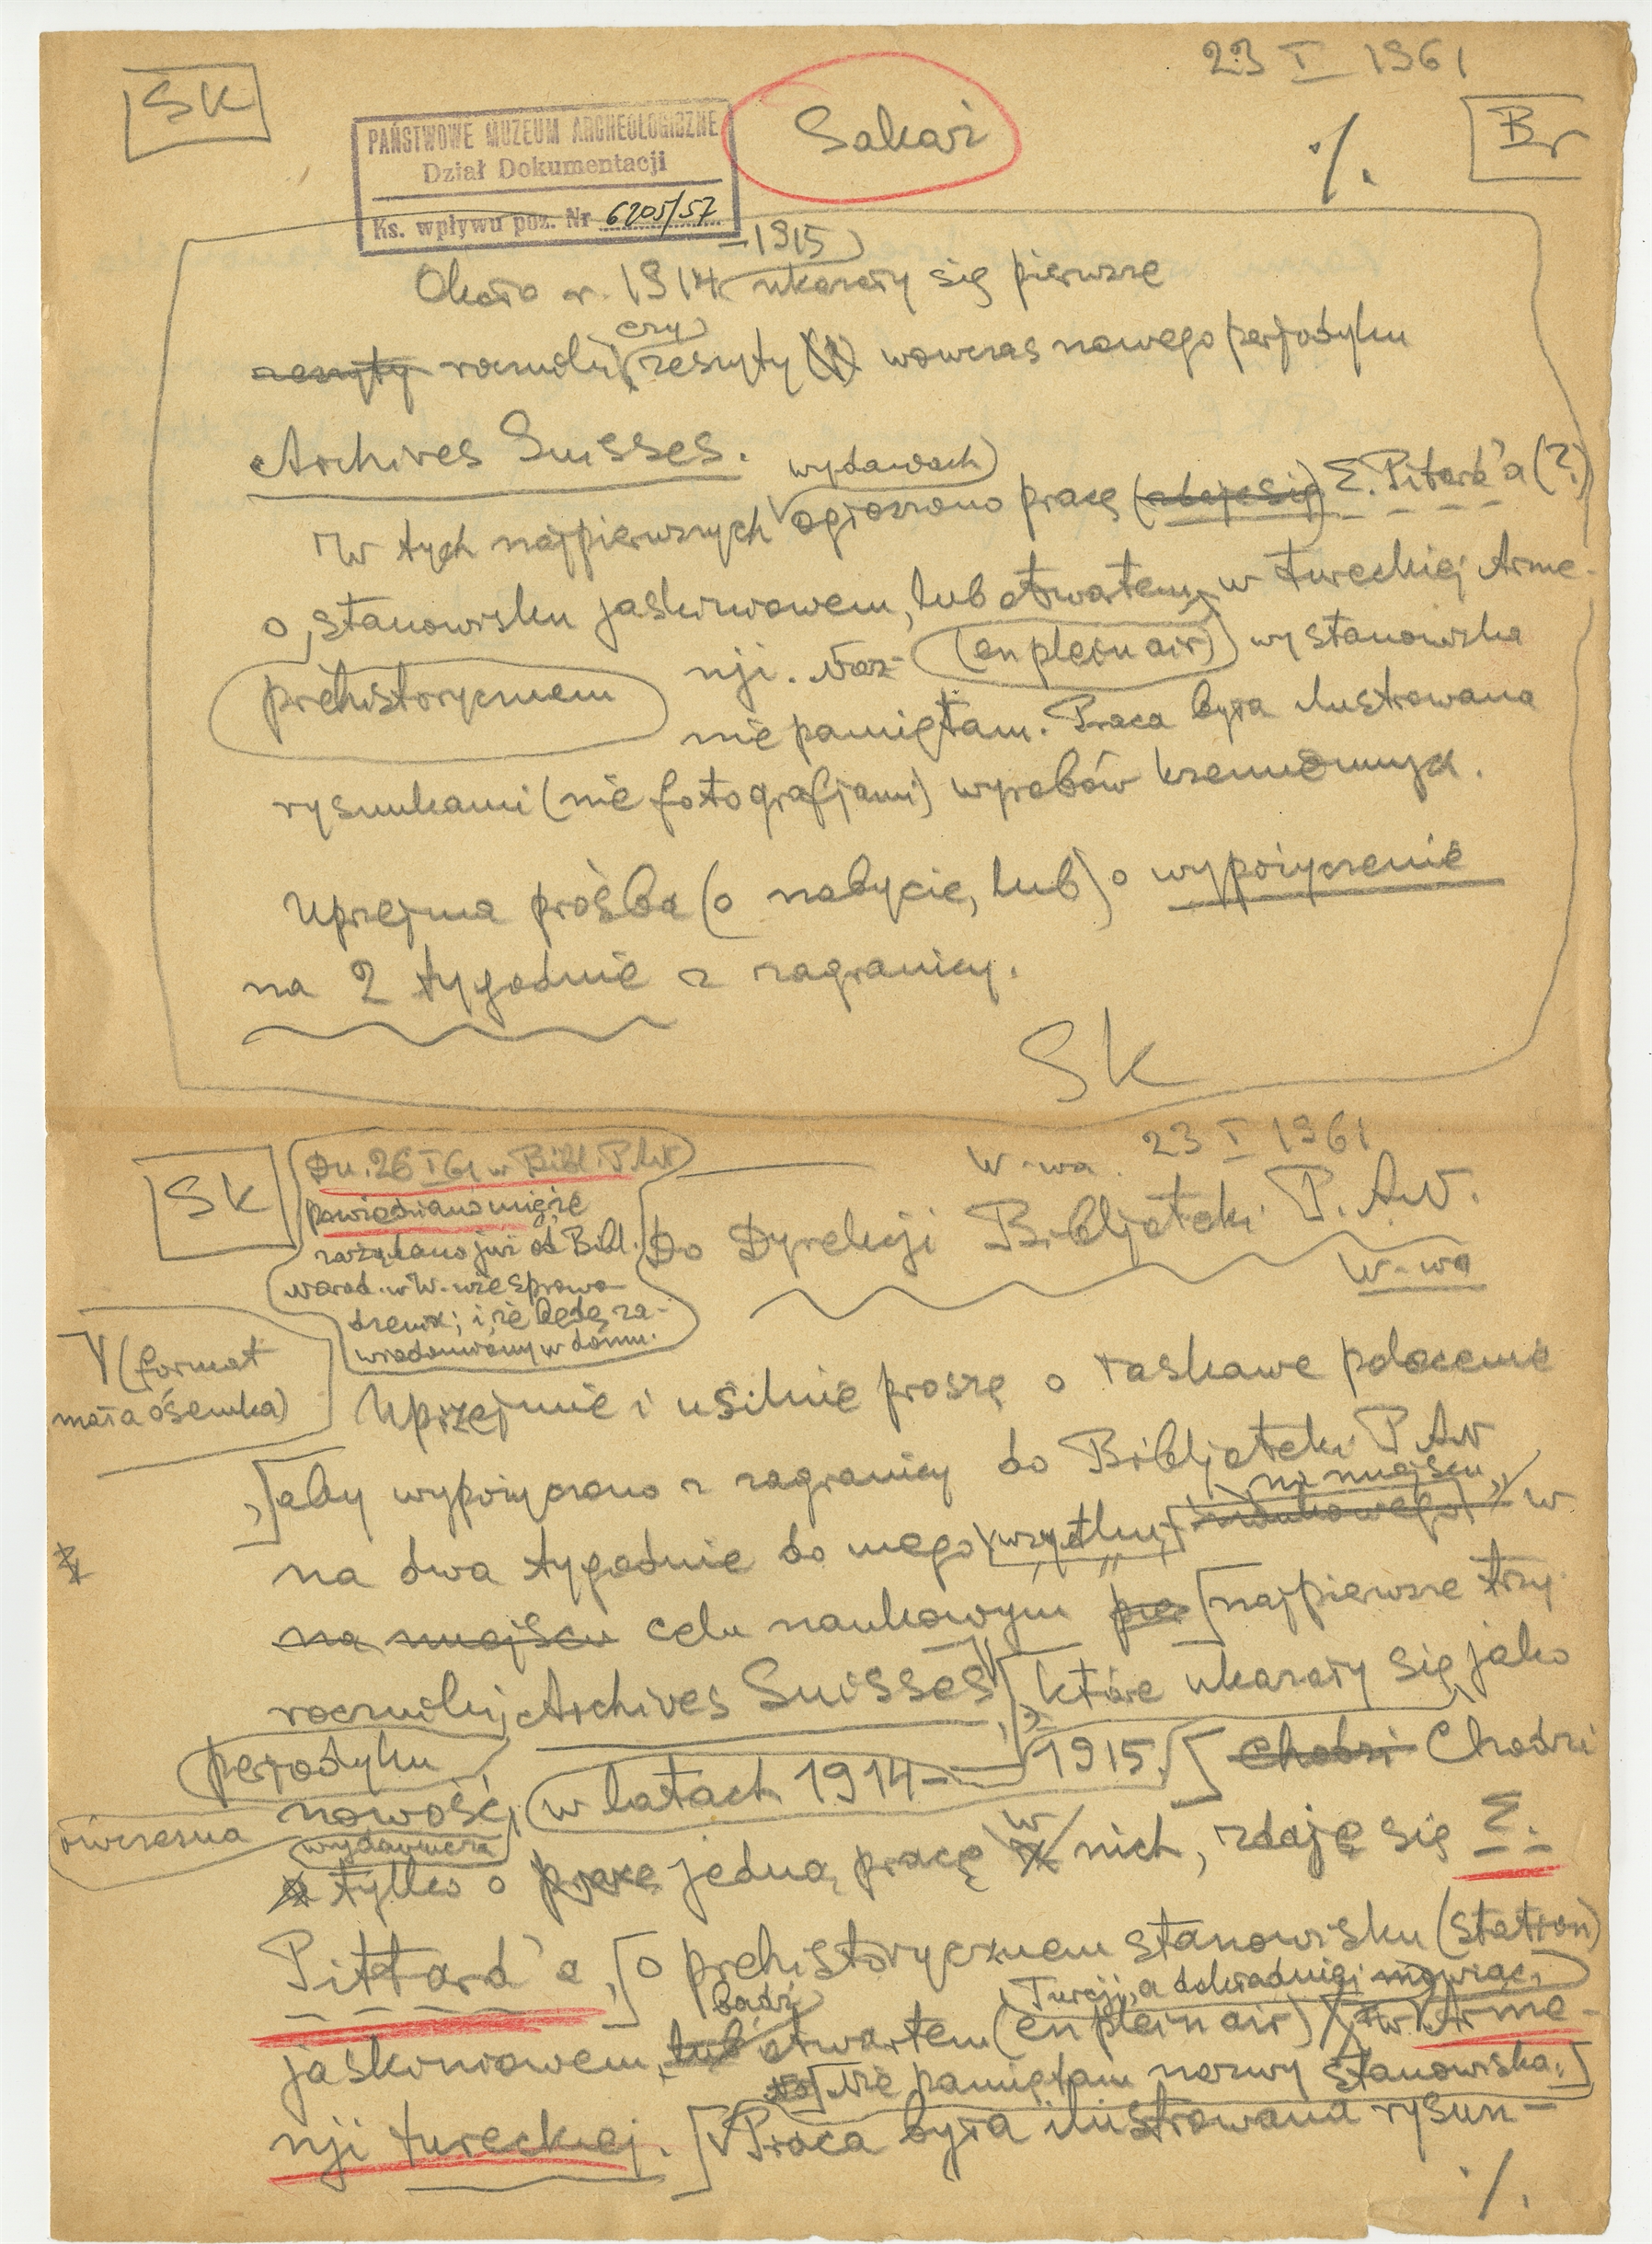 23 I 1961
SK
Sakaż
Br
PAŃSTWOWE MUZEUM ARCHEOLOGICZNE
Dział Dokumentacji
Ks. wpływu poz. Nr 6205/57
·/.
–1915
Około r. 1914 ukazały się pierwsze
czy
zeszyty roczniki zeszyty wówczas nowego perjodyku
Archives Suisses.
wydawach
W tych najpierwszych ogłoszono pracę (zdaje się) E. Pitard'a (?)
o stanowisku jaskiniowem, lub otwartem w tureckiej Arme-
prehistorycznem nji. Naz- (en plein air) wy stanowiska
nie pamiętam. Praca była ilustrowana
rysunkami (nie fotografjami) wyrobów krzemiennych.
Uprzejma prośba (o nabycie, lub) o wypożyczenie
na 2 tygodnie z zagranicy.
SK
W-wa. 23 I 1961
SK
Dn. 26 I 61 w Bibl. PAN
powiedziano mi, że
zażądano już od Bibl.
Narod. w W-wie sprowa-
dzenia; i że będę za-
wiadomiony w domu.
Do Dyrekcji Bibljoteki P.A.N.
W-wa
(format
mała ósemka)
Uprzejmie i usilnie proszę o łaskawe polecenie
aby wypożyczono z zagranicy do Bibljoteki P.A.N
na miejscu
na dwa tygodnie do mego użytku naukowego w
na miejscu celu naukowym pier najpierwsze trzy
roczniki Archives Suisses, które ukazały się jako
perjodyku
nowość w latach 1914 – 1915. Chodzi Chodzi
ówczesna
wydawnicza
w
tylko o pracę jedną pracę z nich, zdaję się E.
Pittard'a, o prehistorycznem stanowisku (station)
bądź
Turcji, a dokładniej mówiąc,
jaskiniowem, lub otwartem (en plein air) w Arme-
Nie pamiętam nazwy stanowiska.
nji tureckiej. Praca była ilustrowana rysun-
·/.